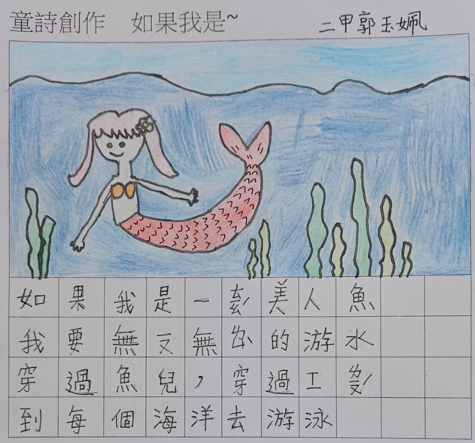 童詩創作 如果我是~ 二甲郭玉姵
如果我是一美人魚
我要無又無的游水
穿過魚兒，穿過
到每個海洋去游泳